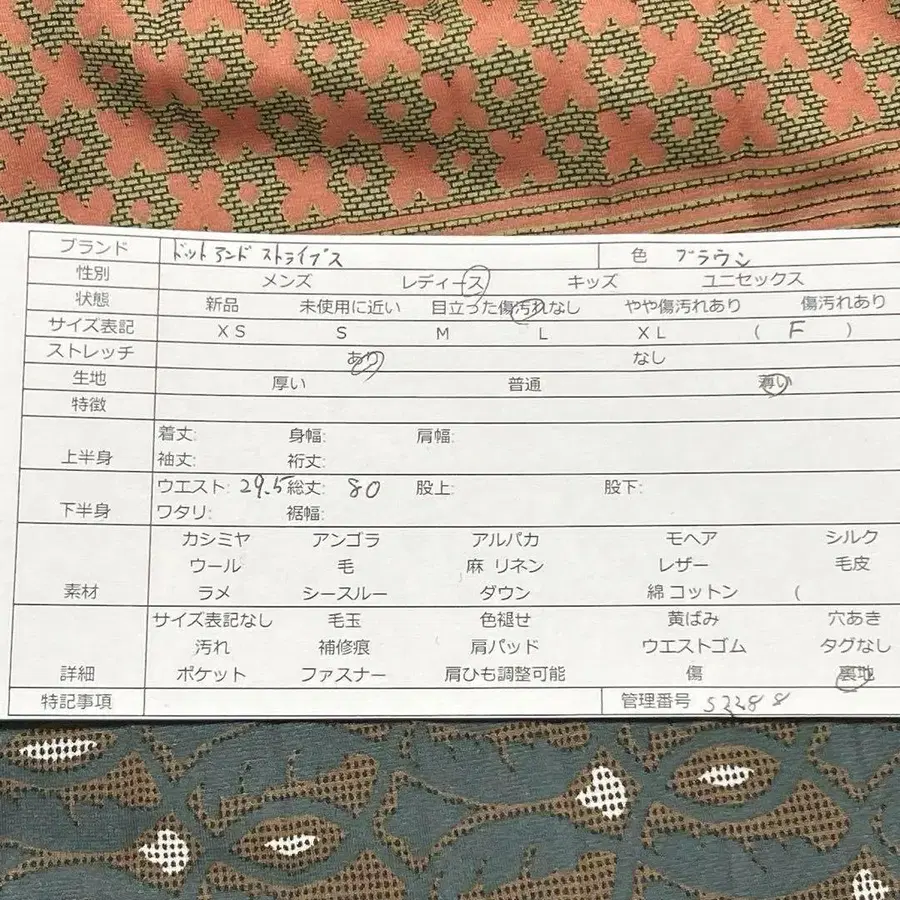 ブランド ドットアンドストライプス 色 ブラウン
性別 メンズ レディース キッズ ユニセックス
状態 新品 未使用に近い 目立った傷汚れなし やや傷汚れあり 傷汚れあり
サイズ表記 XS S M L XL ( F )
ストレッチ あり なし
生地 厚い 普通 薄い
特徴
着丈: 身幅: 肩幅:
上半身 袖丈: 裄丈:
ウエスト: 29.5 総丈: 80 股上: 股下:
下半身 ワタリ: 裾幅:
カシミヤ アンゴラ アルパカ モヘア シルク
ウール 毛 麻 リネン レザー 毛皮
素材 ラメ シースルー ダウン 綿 コットン (
サイズ表記なし 毛玉 色褪せ 黄ばみ 穴あき
汚れ 補修痕 肩パッド ウエストゴム タグなし
詳細 ポケット ファスナー 肩ひも調整可能 傷 裏地
特記事項 管理番号 S2288